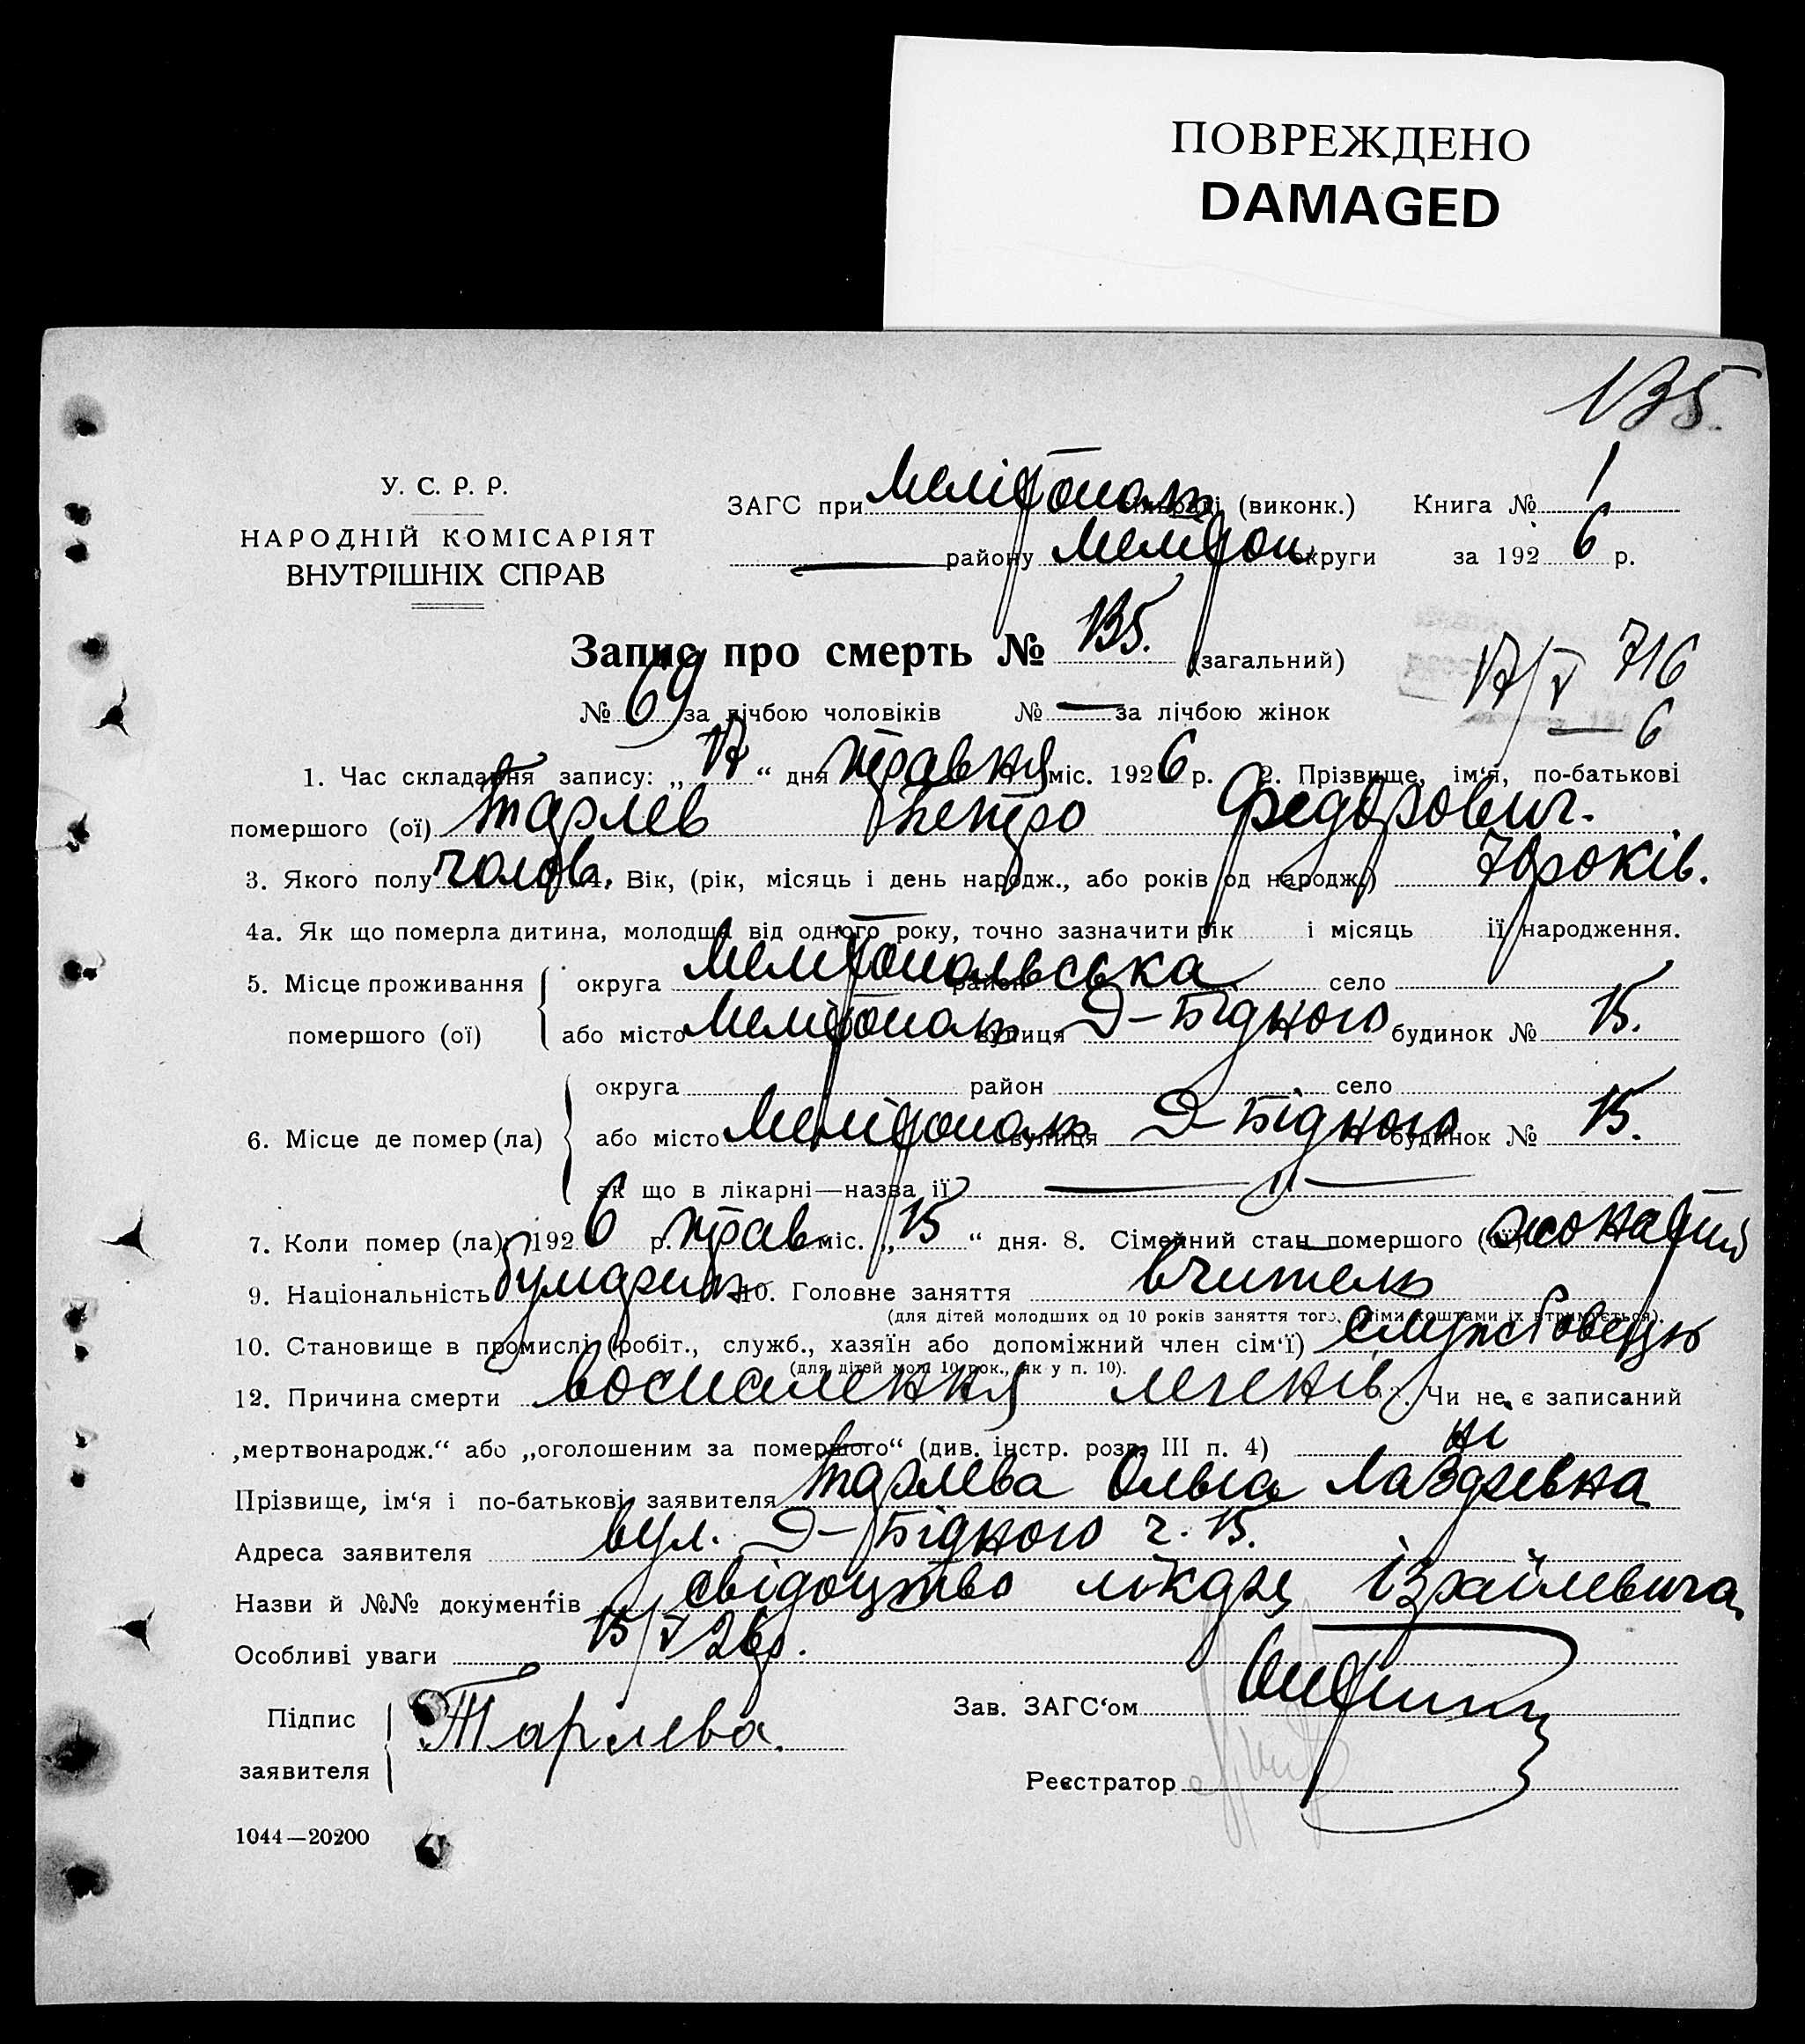 ПОВРЕЖДЕНО
DAMAGED
135.
У. С. Р. Р.
НАРОДНІЙ КОМІСАРІЯТ
ВНУТРІШНІХ СПРАВ
ЗАГС при Мелітополь (виконк.) Книга № 1
— району Мелітоп округи за 1926 р.
Запис про смерть № 135. (загальний)
№ 69 за лічбою чоловіків № — за лічбою жінок
716
6
1. Час складання запису: „17“ дня травня міс. 1926 р. 2. Прізвище, ім‘я, по-батькові
помершого (ої) Тарлев Петро Федорович.
3. Якого полу чолов. 4. Вік, (рік, місяць і день народж., або років од народж.) 70 років.
4а. Як що померла дитина, молодша від одного року, точно зазначити рік і місяць її народження.
5. Місце проживання округа Мелітопольська район село
помершого (ої) або місто Мелітополь вулиця Д-Бідного будинок № 15.
округа район село
6. Місце де помер (ла) або місто Мелітополь вулиця Д-Бідного будинок № 15.
як що в лікарні—назва її — „ —
7. Коли помер (ла) 1926 р. трав міс. „15“ дня. 8. Сімейний стан помершого (ої) жонатий
9. Національність булгарин 10. Головне заняття вчитель
(для дітей молодших од 10 років заняття того, якіми коштами їх втримується).
10. Становище в промислі (робіт., служб., хазяїн або допоміжний член сім‘ї) службовець
(для дітей мол. 10 рок., як у п. 10).
12. Причина смерти воспалення легенів. Чи не є записаний
„мертвонародж.“ або „оголошеним за помершого“ (див. інстр. розд. III п. 4) ні
Прізвище, ім‘я і по-батькові заявителя Тарлева Ольга Лазаревна
Адреса заявителя вул. Д-Бідного ч. 15.
Назви й №№ документів свідоцтво лікаря Ізраїлевича
Особливі уваги 15/V 26р.
Підпис
заявителя Тарлева.
Зав. ЗАГС‘ом
Реєстратор
1044—20200